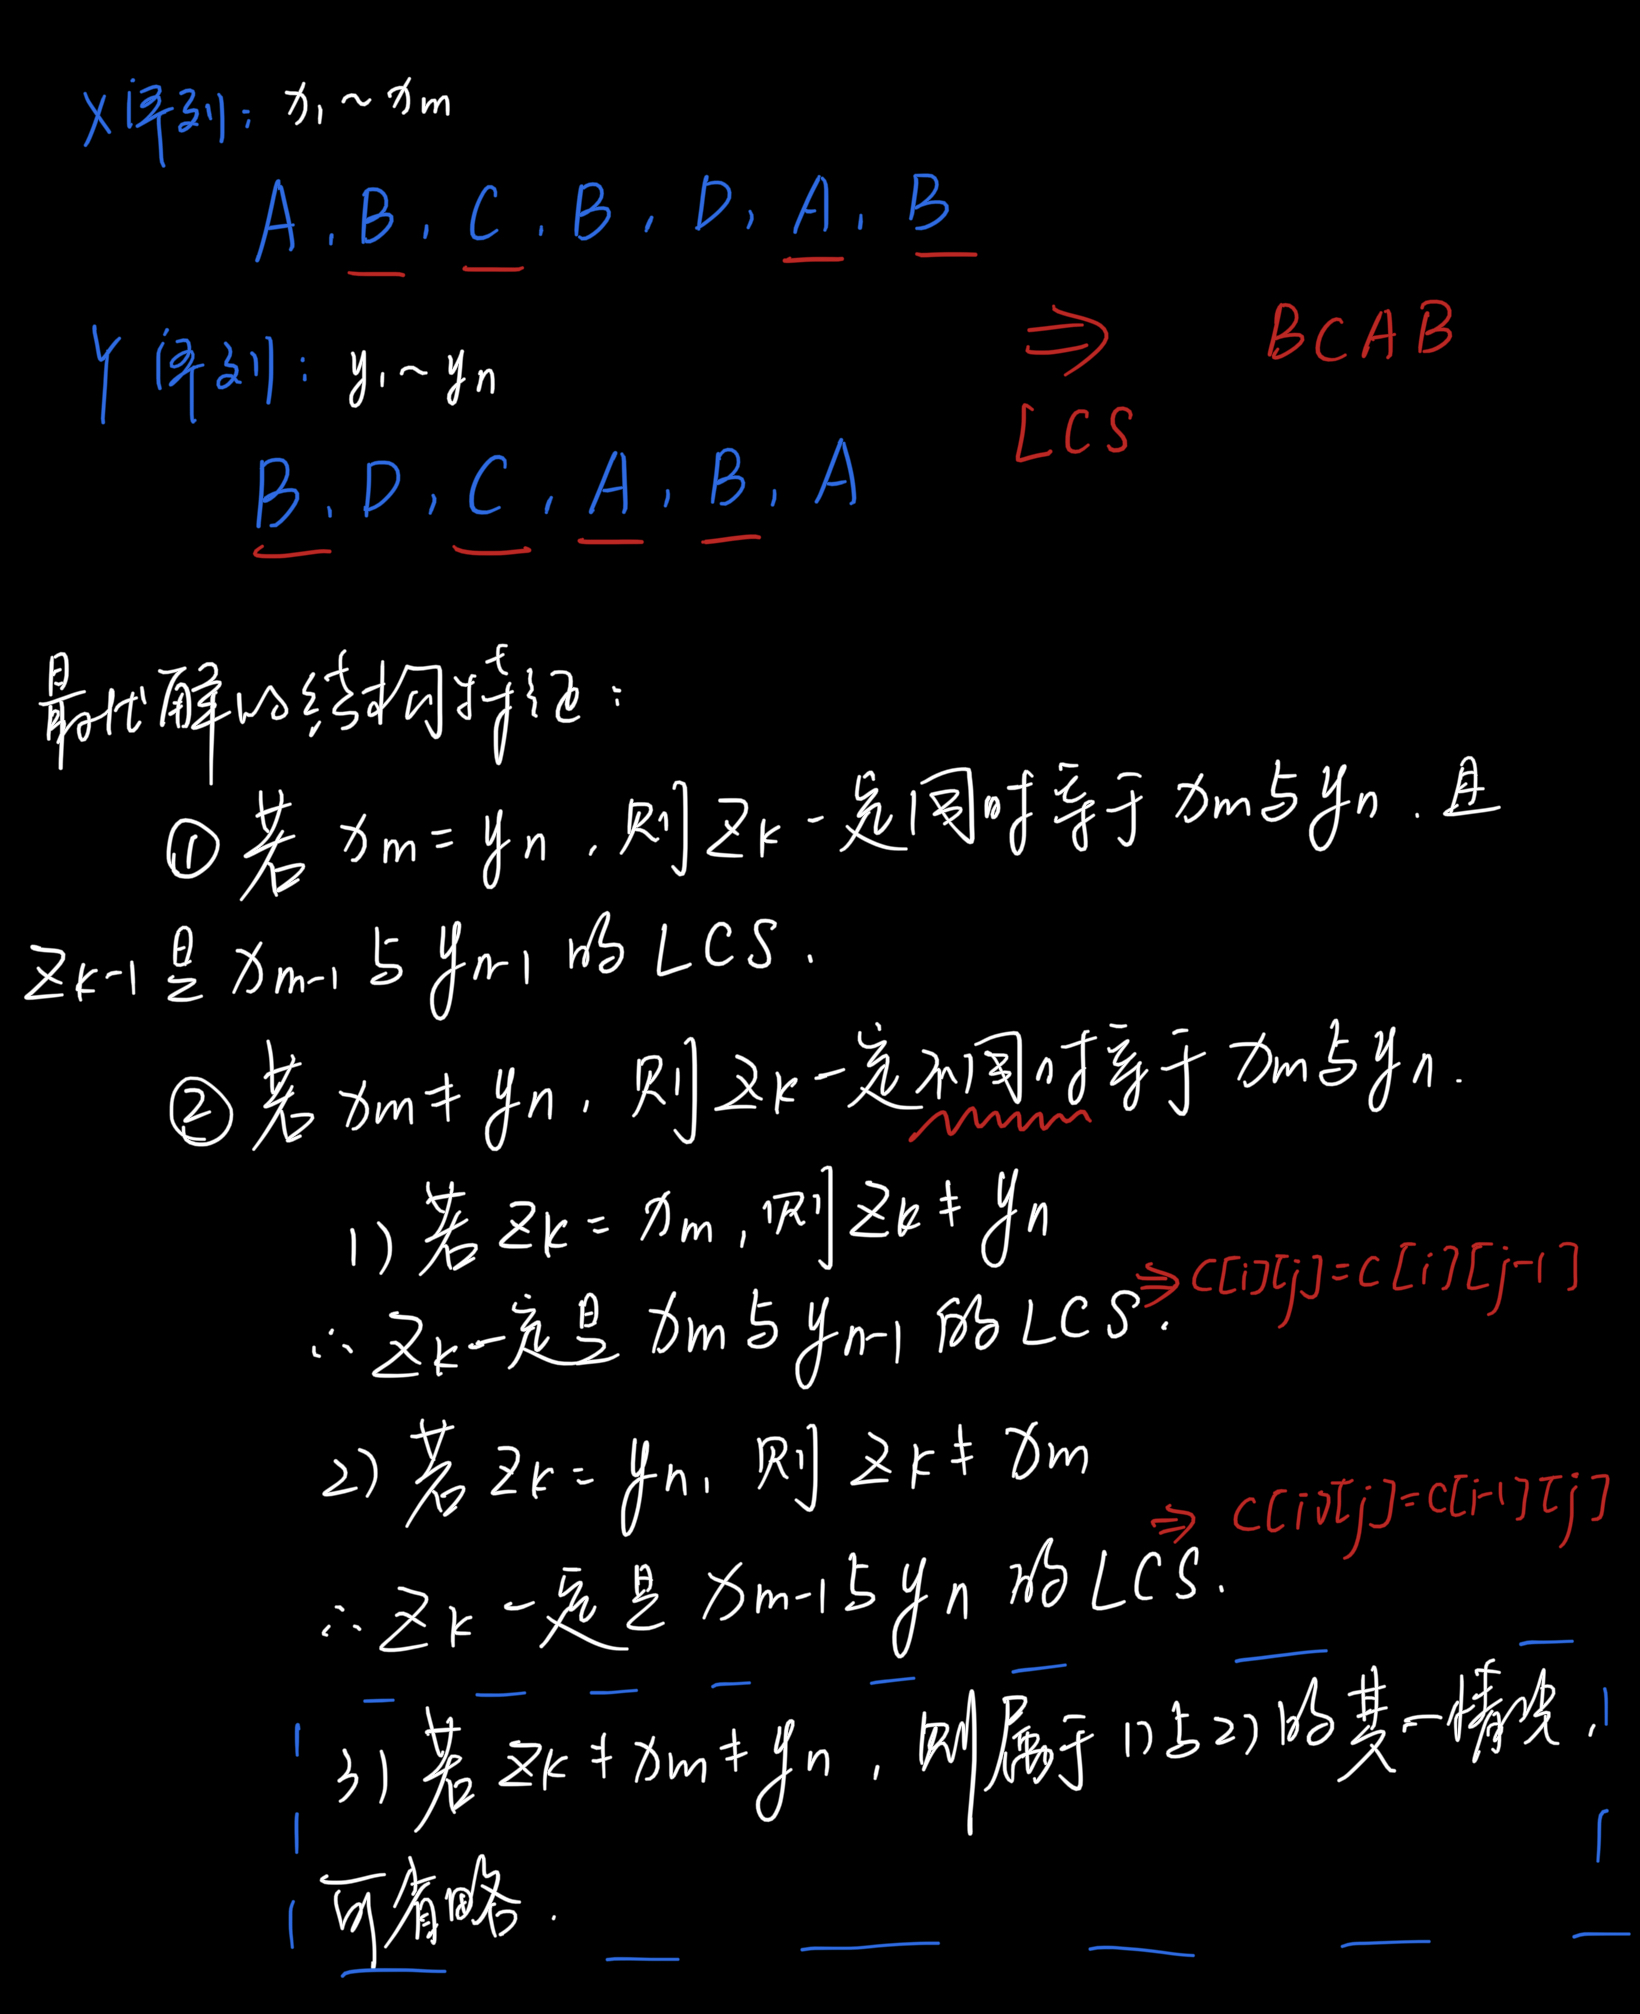 X序列: x₁~xₘ
A, B, C, B, D, A, B
Y序列: y₁~yₙ
B, D, C, A, B, A
⇒ BCAB
LCS
最优解的结构特征:
① 若 xₘ = yₙ, 则 zₖ 一定同时等于 xₘ 与 yₙ, 且
zₖ₋₁ 是 xₘ₋₁ 与 yₙ₋₁ 的 LCS.
② 若 xₘ ≠ yₙ, 则 zₖ 一定不同时等于 xₘ 与 yₙ.
1) 若 zₖ = xₘ, 则 zₖ ≠ yₙ
∴ zₖ 一定是 xₘ 与 yₙ₋₁ 的 LCS. ⇒ C[i][j]=C[i][j-1]
2) 若 zₖ = yₙ, 则 zₖ ≠ xₘ
∴ zₖ 一定是 xₘ₋₁ 与 yₙ 的 LCS. ⇒ C[i][j]=C[i-1][j]
3) 若 zₖ ≠ xₘ ≠ yₙ, 则属于 1) 与 2) 的其一情况,
可省略.